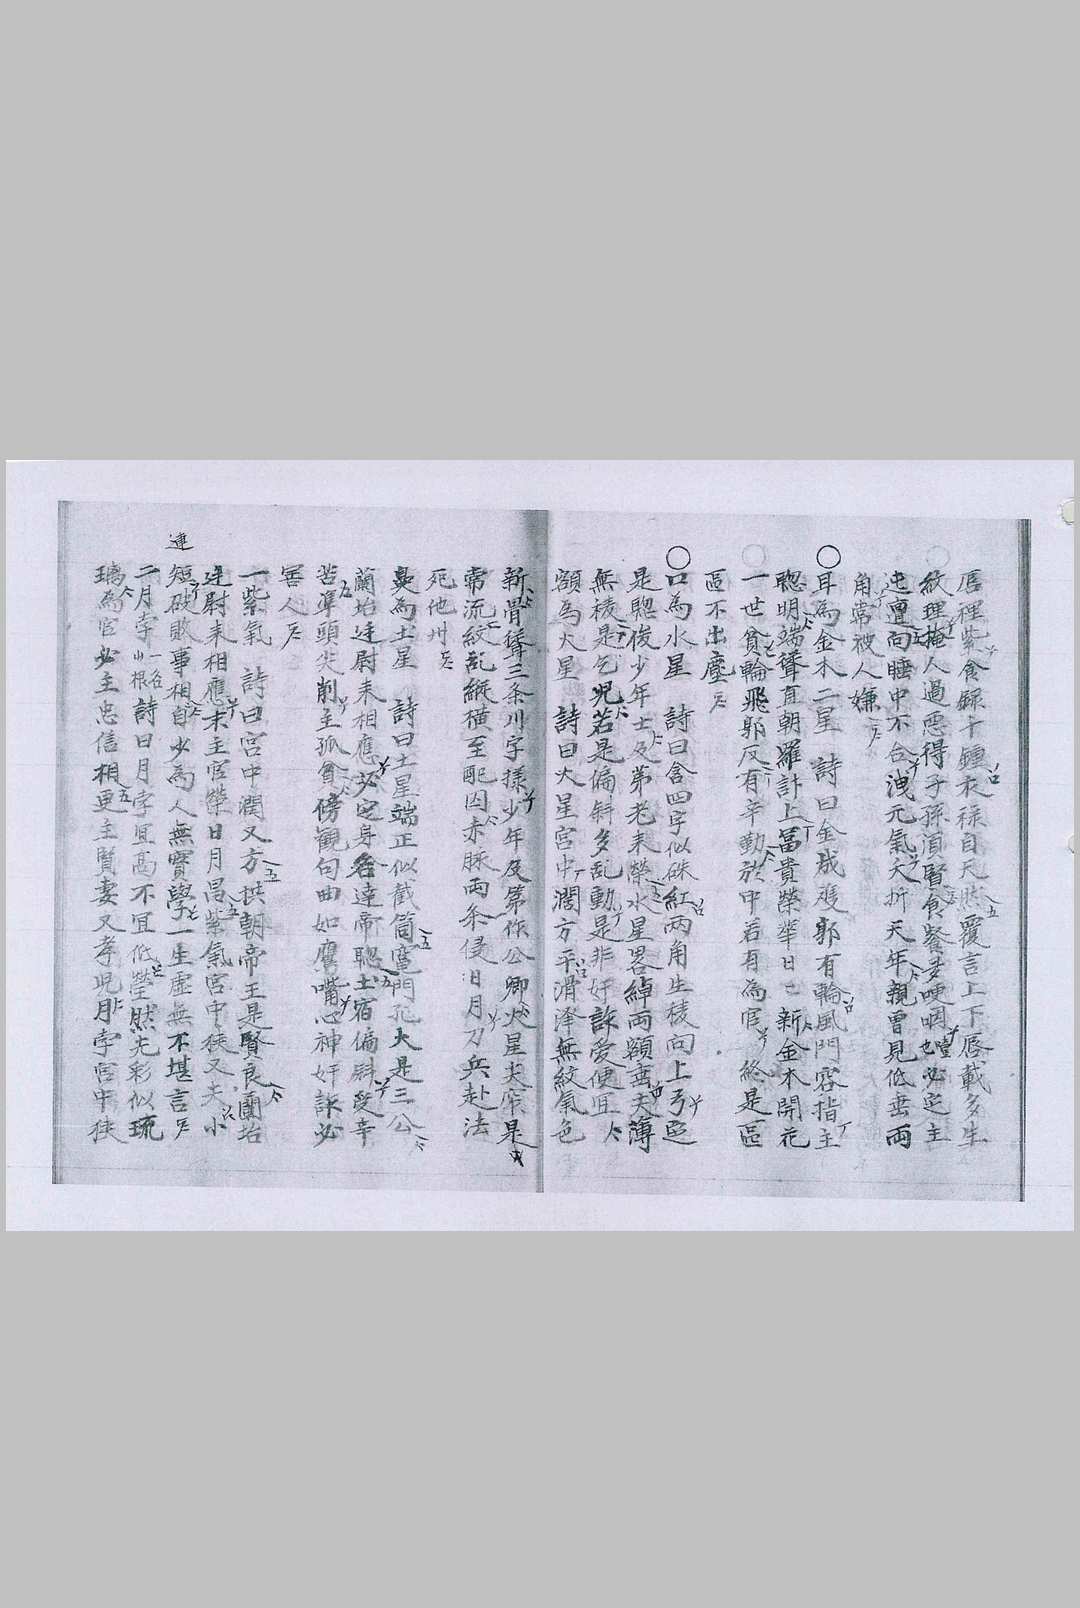 唇裡紫食録千鍾衣禄自天然覆言上下唇載多生
紋理掩人過悪得子孫須賢食餐多哽咽必定主
迍邅向睡中不合洩元氣夭折天年親曾見低垂両
角常被人嫌
耳為金木二星 詩曰金成廓有輪風門容指主
聡明端聳直朝羅計上冨貴榮華日日新金木開花
一世貧輪飛郭反有辛勤於中若有為官 終是區
區不出塵
口為水星 詩曰含四字似硃紅両角生稜向上弓定
是聡俊少年士及苐老来榮水星畧綽両額垂尖薄
無稜是乞児若是偏斜多乱動是非奸詐愛便冝
額為火星 詩曰火星宮中濶方平滑澤無紋氣色
新骨聳三条川字様少年及第作公卿火星尖窄是
常流紋乱縦横至配囚赤脉両条侵日月刀兵赴法
死他州
鼻為土星 詩曰土星端正似截筒竃門孔大是三公
蘭㙜廷尉来相應必定身名達帝聡土宿偏斜受辛
苦凖頭尖削主孤貧傍觀句曲如鷹嘴心神奸詐必
害人
一紫氣 詩曰宮中濶又方拱朝帝王是賢良蘭㙜
廷尉来相應末主官榮日月昌紫氣宮中狹又尖小
短破敗事相自少為人無實學一生虚無不堪言
連
二月孛一名山根 詩曰月孛冝高不冝低瑩然光彩似琉
璃為官必主忠信相更主賢妻又孝児月孛宮中狹